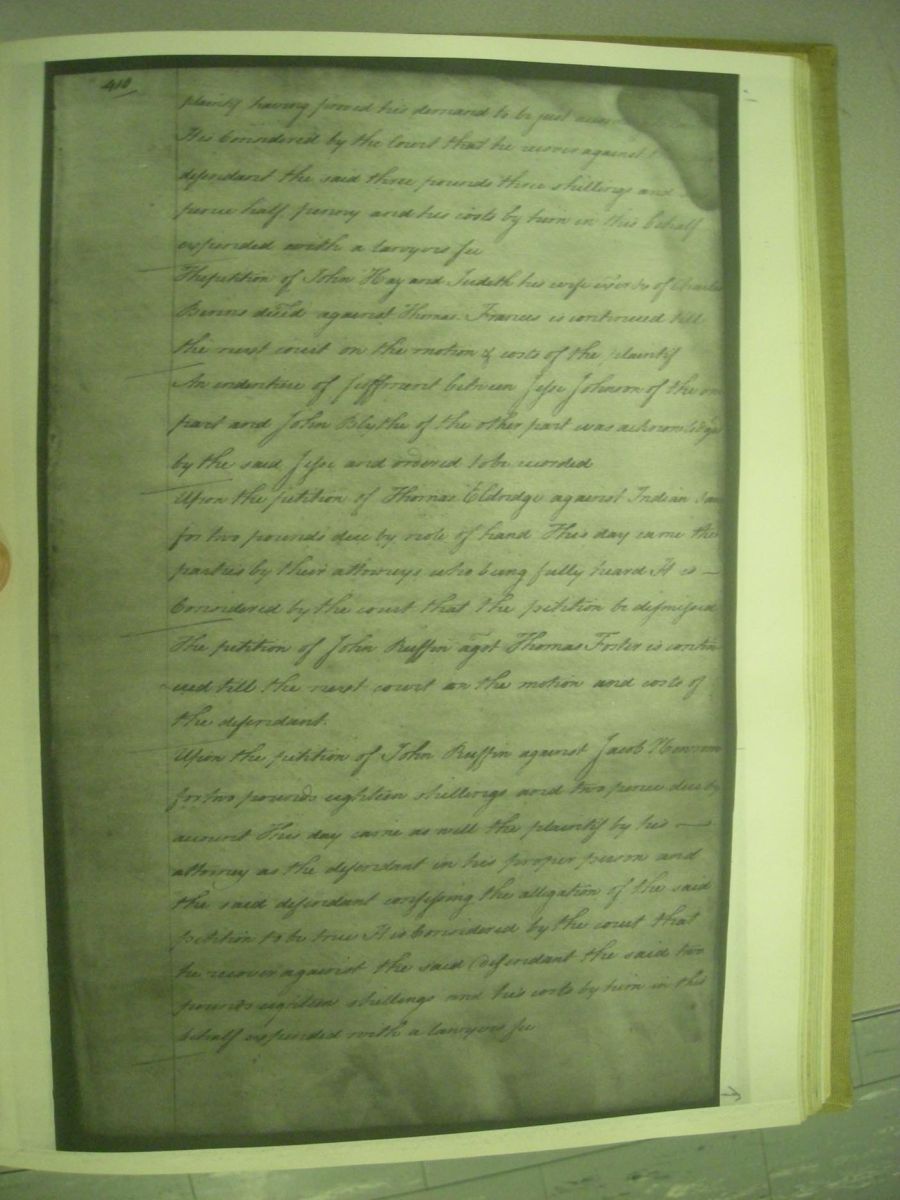 410
plaintif having proved his demand to be just
It is Considered by the Court that he recover against
defendant the said three pounds three shillings and
pence half penny and his costs by him in this behalf
expended with a lawyers fee
The petition of John Hay and Judith his wife of Charles
Binns dec'd against Thomas Frances is continued till
the next court on the motion & costs of the plaintif
An indenture of feoffment between Jesse Johnson of the one
part and John Blythe of the other part was acknowledged
by the said Jesse and ordered to be recorded
Upon the petition of Thomas Eldridge against Indian Sam
for two pounds due by note of hand This day came the
parties by their attorneys who being fully heard It is
Considered by the court that the petition be dismissed
The petition of John Ruffin agst Thomas Foster is contin
ued till the next court on the motion and costs of
the defendant.
Upon the petition of John Ruffin against Jacob Newsom
for two pounds eighteen shillings and two pence due by
account This day came as well the plaintif by his
attorney as the defendant in his proper person and
the said defendant confessing the allegation of the said
petition to be true It is Considered by the court that
he recover against the said defendant the said two
pounds eighteen shillings and his costs by him in this
behalf expended with a lawyers fee